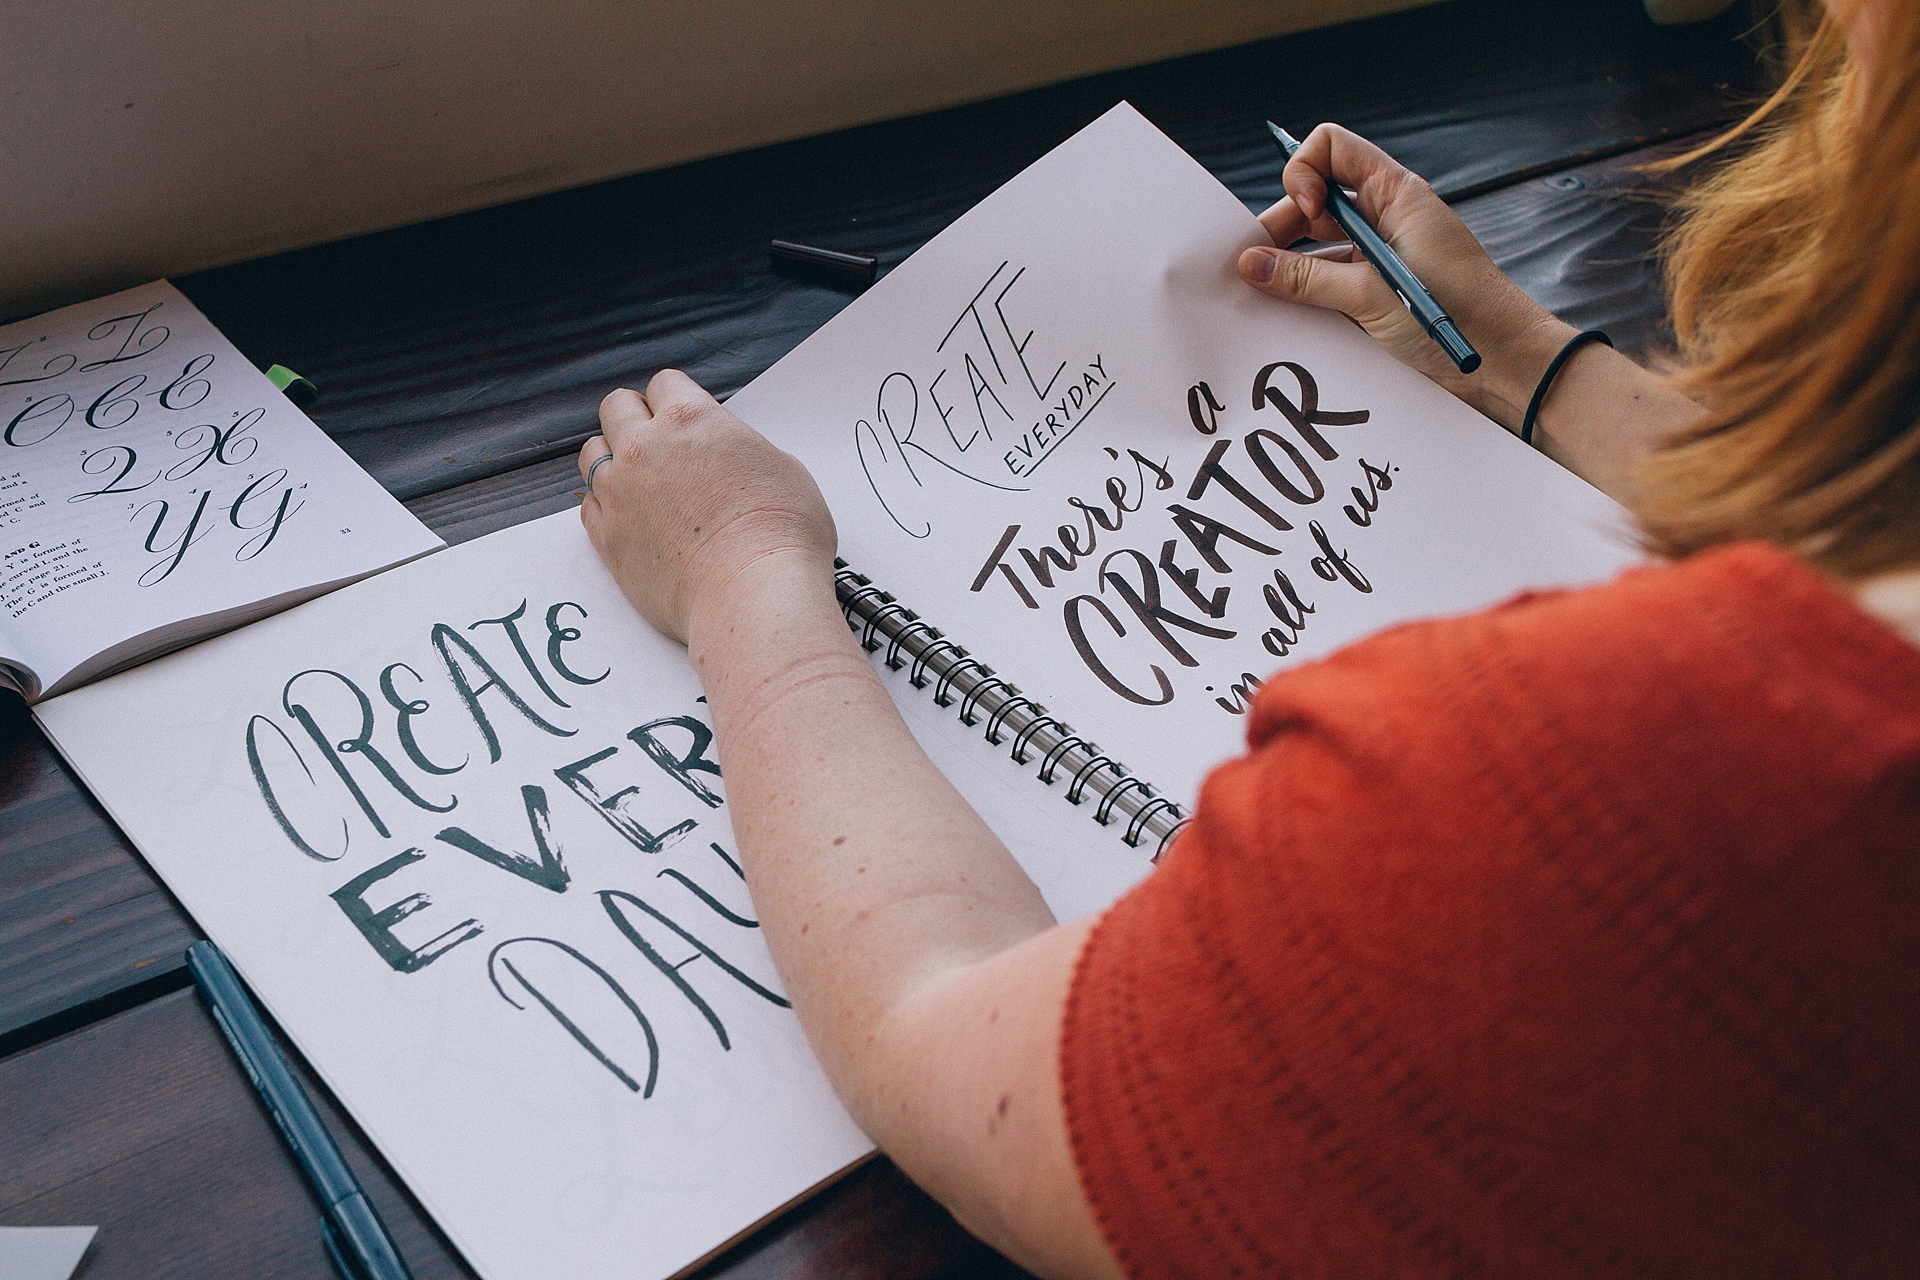 Z Z
O C E
Q X
Y G
AND G
Y is formed of
curved L and the
J, see page 21.
The G is formed of
the C and the small J.
33
CREATE
EVERY
DAY
CREATE
EVERYDAY
There's a
CREATOR
in all of us.